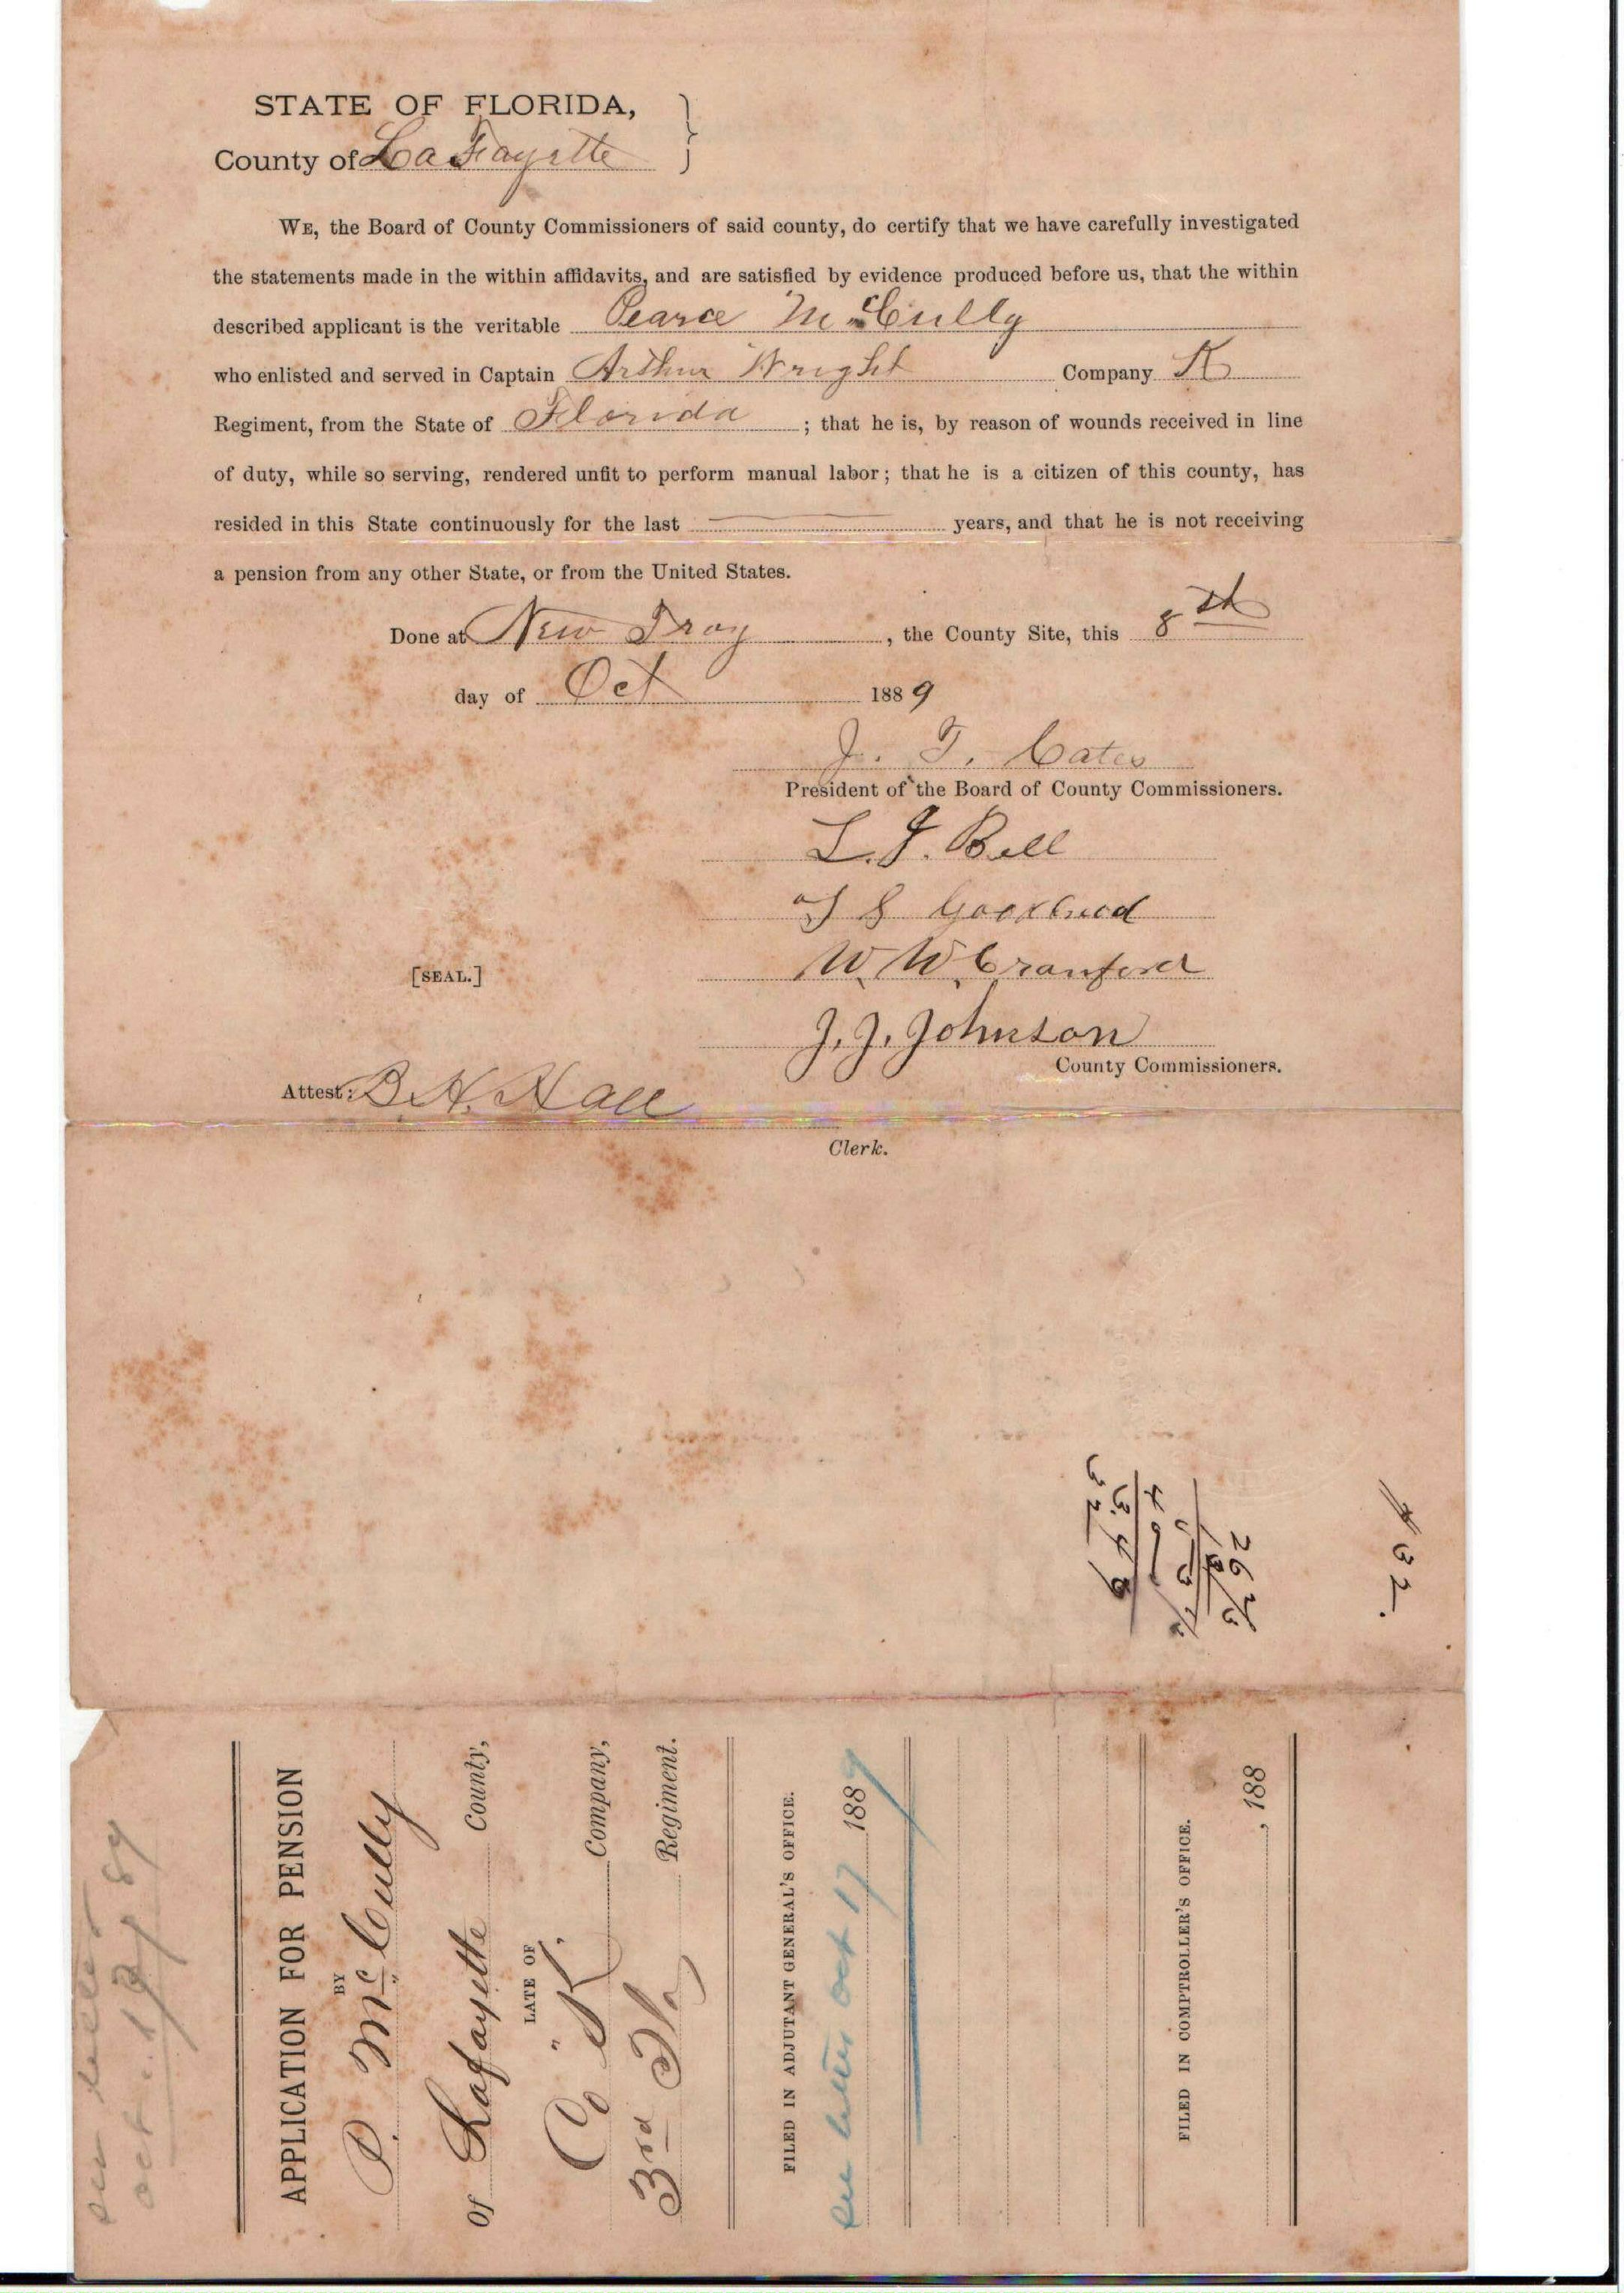 STATE OF FLORIDA,
County of La Fayette
WE, the Board of County Commissioners of said county, do certify that we have carefully investigated
the statements made in the within affidavits, and are satisfied by evidence produced before us, that the within
described applicant is the veritable Pearce McCully
who enlisted and served in Captain Arthur Wright Company K
Regiment, from the State of Florida ; that he is, by reason of wounds received in line
of duty, while so serving, rendered unfit to perform manual labor; that he is a citizen of this county, has
resided in this State continuously for the last years, and that he is not receiving
a pension from any other State, or from the United States.
Done at New Troy, the County Site, this 8th
day of Oct 1889
J. T. Cates
President of the Board of County Commissioners.
L. J. Bell
W. W. Cranford
[SEAL.]
J. J. Johnson
County Commissioners.
Attest: B. H. Hall
Clerk.
$32.
26 2/3
see letter
oct. 19/89
APPLICATION FOR PENSION
BY
P. McCully
Of Lafayette County,
LATE OF
Co "K" Company,
3rd Fla Regiment.
FILED IN ADJUTANT GENERAL'S OFFICE.
see letter oct 17 1889
FILED IN COMPTROLLER'S OFFICE.
, 188